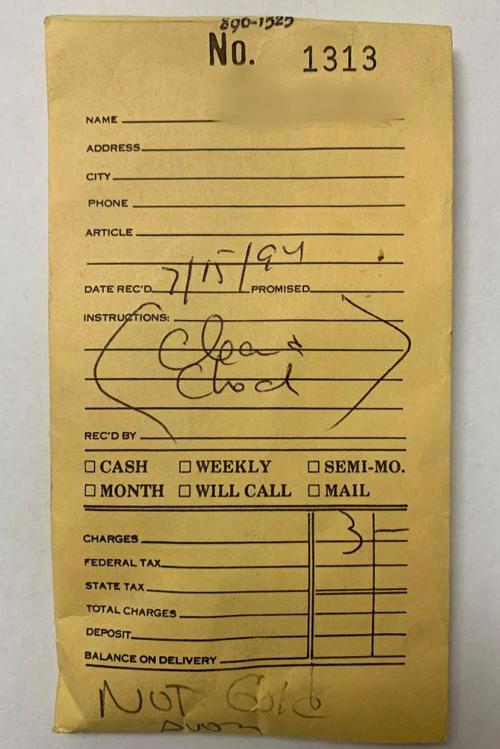 890-1525
No. 1313
NAME
ADDRESS
CITY
PHONE
ARTICLE
7/15/94
DATE REC'D PROMISED
INSTRUCTIONS:
Clean &
Check
REC'D BY
☐ CASH ☐ WEEKLY ☐ SEMI-MO.
☐ MONTH ☐ WILL CALL ☐ MAIL
CHARGES 3 —
FEDERAL TAX
STATE TAX
TOTAL CHARGES
DEPOSIT
BALANCE ON DELIVERY
NOT Gold